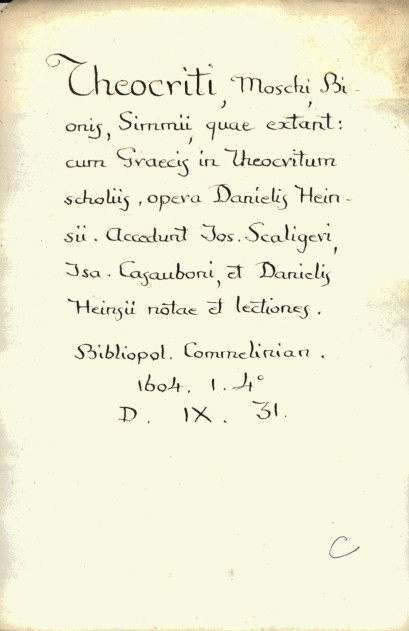 Theocriti, Moschi, Bi-
onis, Simmii, quae extant:
cum Graecis in Theocritum
scholiis, opera Danielis Hein-
sii. Accedunt Jos. Scaligeri,
Isa. Casauboni, et Danielis
Heinsii notae et lectiones.
Bibliopol. Commelinian.
1604. 1. 4°
D. IX. 31.
C